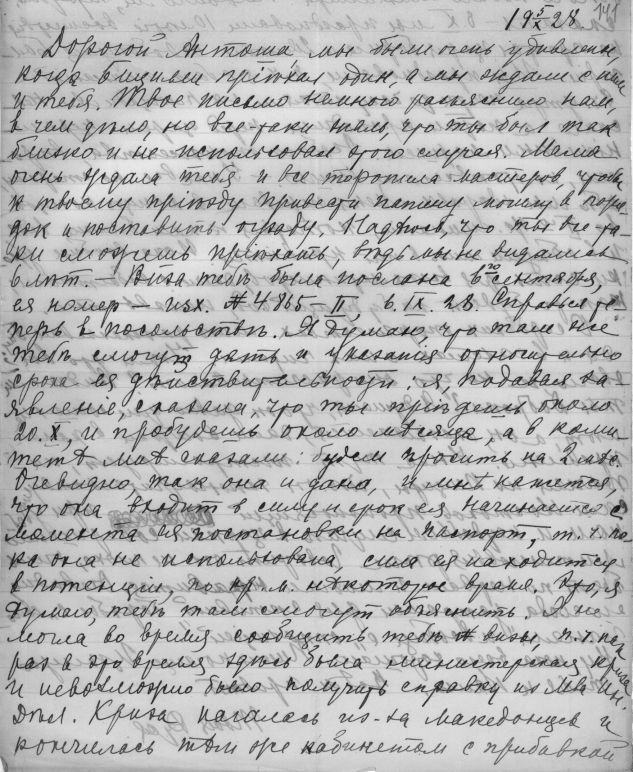 19 5/X 28 141
Дорогой Антоша, мы были очень удивлены,
когда Бицилли пріѣхал один, а мы ждали с ним
и тебя. Твое письмо немного разъяснило нам,
в чем дѣло, но все таки жаль, что ты был так
близко и не использовал этого случая. Мама
очень ждала тебя и все торопила мастеров, чтобы
к твоему пріѣзду привести папину могилу в поря-
док и поставить ограду. Надѣюсь, что ты все та-
ки сможешь пріѣхать, вѣдь мы не видались
6 лѣт. — Виза тебѣ была послана 6го сентября,
ея номер — исх. № 4865–II, 6.IX.28. Справься те-
перь в посольствѣ. Я думаю, что там же
тебѣ смогут дать и указанія относительно
срока ея дѣйствительности: я, подавая за-
явленіе, сказала, что ты пріѣдешь около
20.X, и пробудешь около мѣсяца, а в коми-
тетѣ мнѣ сказали: будем просить на 2 мѣс.
Очевидно, так она и дана, и мнѣ кажется,
что она входит в силу и срок ея начинается с
момента ея постановки на паспорт, т. ч. по-
ка она не использована, сила ея находится
в потенціи, по кр. м. нѣкоторое время. Это, я
думаю, тебѣ там смогут объяснить. Я не
могла во время сообщить тебѣ № визы, п. ч. как
раз в это время здѣсь была министерская криза
и невозможно было получить справку из М-ва Ин.
Дѣл. Криза началась из-за македонцев и
кончилась тѣм же кабинетом с прибавкой